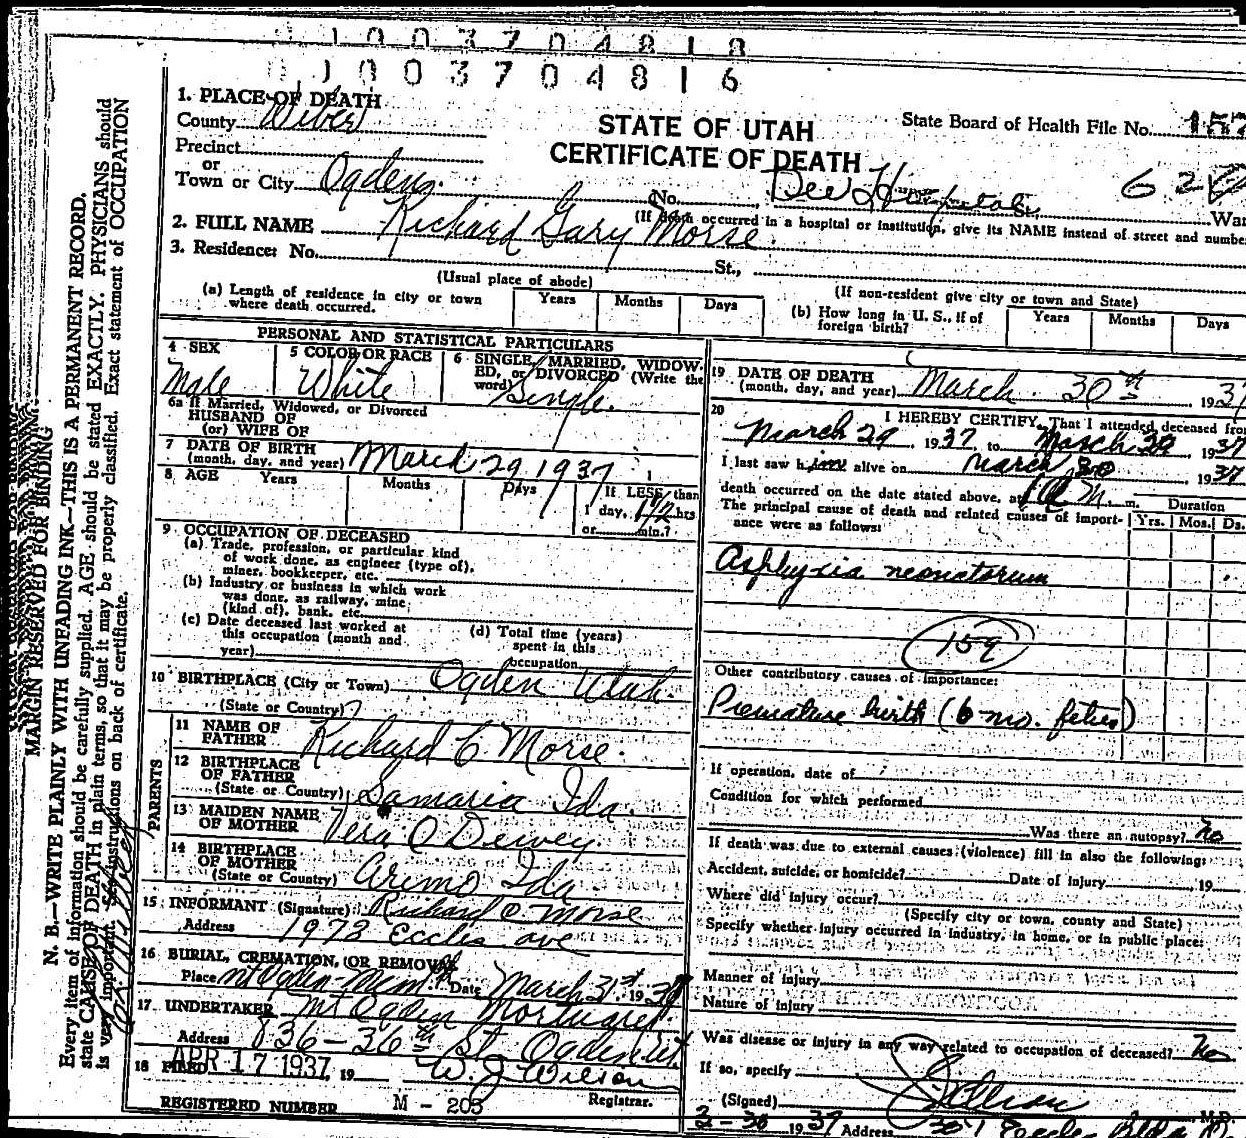 1003704818
1003704816
1. PLACE OF DEATH
County Weber
STATE OF UTAH
CERTIFICATE OF DEATH
State Board of Health File No. 157
Precinct
or
Town or City Ogden
No. Dee Hospital
62
War
(If death occurred in a hospital or institution, give its NAME instead of street and numbe
2. FULL NAME Richard Gary Morse
3. Residence: No. St.,
(Usual place of abode)
(If non-resident give city or town and State)
(a) Length of residence in city or town where death occurred. Years Months Days
(b) How long in U. S., if of foreign birth? Years Months Days
PERSONAL AND STATISTICAL PARTICULARS
4 SEX Male
5 COLOR OR RACE White
6 SINGLE, MARRIED, WIDOWED, or DIVORCED (Write the word) Single.
6a If Married, Widowed, or Divorced
HUSBAND OF
(or) WIFE OF
7 DATE OF BIRTH
(month, day, and year) March 29, 1937
8 AGE Years Months Days If LESS than
1 day, hrs.
or min.?
9 OCCUPATION OF DECEASED
(a) Trade, profession, or particular kind
of work done, as engineer (type of),
miner, bookkeeper, etc.
(b) Industry or business in which work
was done, as railway, mine
(kind of), bank, etc.
(c) Date deceased last worked at
this occupation (month and
year)
(d) Total time (years)
spent in this
occupation
10 BIRTHPLACE (City or Town) Ogden Utah.
(State or Country)
PARENTS
11 NAME OF
FATHER Richard C Morse.
12 BIRTHPLACE
OF FATHER
(State or Country) Samaria Ida.
13 MAIDEN NAME
OF MOTHER Vera O Dewey.
14 BIRTHPLACE
OF MOTHER
(State or Country) Arimo Ida.
15 INFORMANT (Signature) Richard C Morse
Address 1973 Eccles ave
16 BURIAL, CREMATION, OR REMOVAL
Place Mt Ogden Mem. Date March 31st 1937
17. UNDERTAKER Mt Ogden Mortuary
Address 836 - 36th St Ogden Ut.
18 FILED APR 17 1937, 19 W. J. Wilson
Registrar.
REGISTERED NUMBER M - 205
19 DATE OF DEATH
(month, day, and year) March 30th, 1937
20 I HEREBY CERTIFY, That I attended deceased from
March 29, 1937 to March 30 1937
I last saw him alive on March 30, 1937
death occurred on the date stated above, at M. m.
The principal cause of death and related causes of importance were as follows:
Duration
Yrs. Mos. Ds.
Asphyxia neonatorum
159
Other contributory causes of importance:
Premature birth (6 mo. fetus)
If operation, date of
Condition for which performed
Was there an autopsy? No
If death was due to external causes (violence) fill in also the following:
Accident, suicide, or homicide? Date of injury, 19
Where did injury occur?
(Specify city or town, county and State)
Specify whether injury occurred in industry, in home, or in public place:
Manner of injury
Nature of injury
Was disease or injury in any way related to occupation of deceased? No
If so, specify
(Signed) M.D.
3-30 1937 Address Eccles Bldg
MARGIN RESERVED FOR BINDING
N. B.—WRITE PLAINLY WITH UNFADING INK—THIS IS A PERMANENT RECORD.
Every item of information should be carefully supplied. AGE should be stated EXACTLY. PHYSICIANS should
state CAUSE OF DEATH in plain terms, so that it may be properly classified. Exact statement of OCCUPATION
is very important. See instructions on back of certificate.